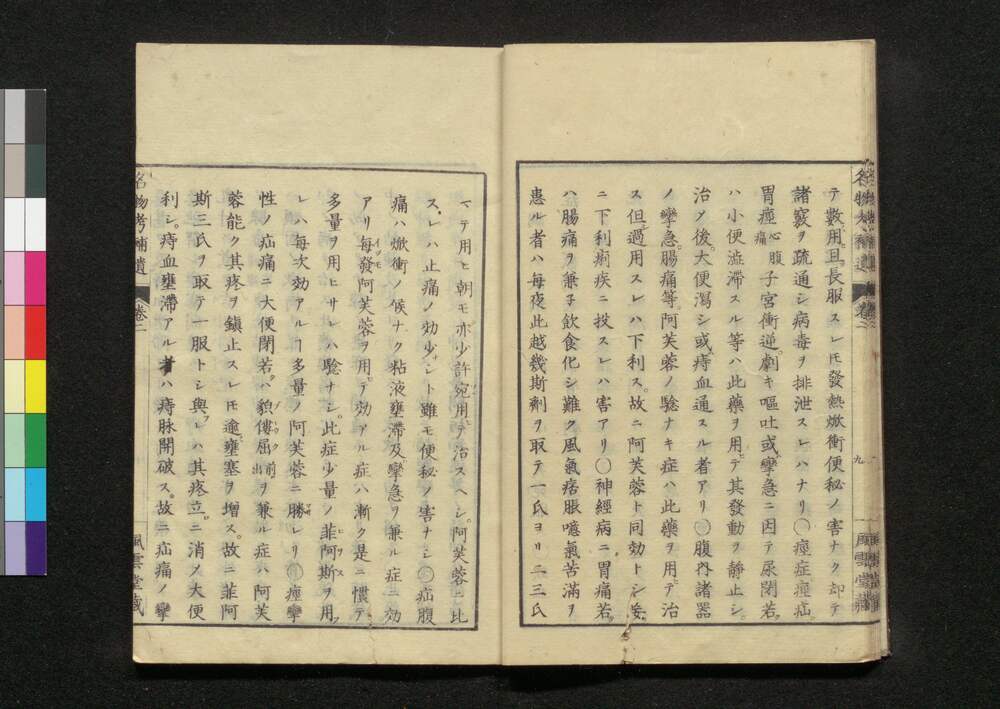 テ數用シ且長服スレトモ發熱焮衝便秘ノ害ナク却テ
諸竅ヲ疏通シ病毒ヲ排泄スレハナリ○痙症痙疝
胃痙心腹痛子宮衝逆劇キ嘔吐或ハ攣急ニ因テ尿閉若ク
ハ小便澁滯スル等ハ此藥ヲ用テ其發動ヲ靜止シ
治メ後大便瀉シ或ハ痔血通スル者アリ○腹內諸器
ノ攣急腸痛等阿芙蓉ノ驗ナキ症ハ此藥ヲ用テ治
ス但過用スレハ下利ス故ニ阿芙蓉ト同効トシ妄
ニ下利痢疾ニ投スレハ害アリ○神經病ニ胃痛若ク
ハ腸痛ヲ兼子飲食化シ難ク風氣痞脹噫氣苦滿ヲ
患ル者ハ每夜此越幾斯劑ヲ取テ一氏ヨリ二三氏
マテ用ヒ朝モ亦少許宛用テ治スヘシ阿芙蓉ニ比
スレハ止痛ノ効少シト雖モ便秘ノ害ナシ○疝腹
痛ハ焮衝ノ候ナク粘液壅滯及攣急ヲ兼ル症ニ効
アリ每發阿芙蓉ヲ用テ効アル症ハ漸ク是ニ慣テ
多量ヲ用ヒサレハ驗ナシ此症少量ノ菲阿斯ヲ用フ
レハ每次効アルヿ多量ノ阿芙蓉ニ勝レリ○痙攣
性ノ疝痛ニ大便閉若クハ貌僂屈前出ヲ兼ル症ハ阿芙
蓉能ク其疼ヲ鎭止スレトモ逾壅塞ヲ增ス故ニ菲阿
斯三氏ヲ取テ一服トシ與レハ其疼立ニ消メ大便
利シ痔血壅滯アル者ハ痔脉開破ス故ニ疝痛ノ攣
名物考補遺 卷二
風雲堂藏
九